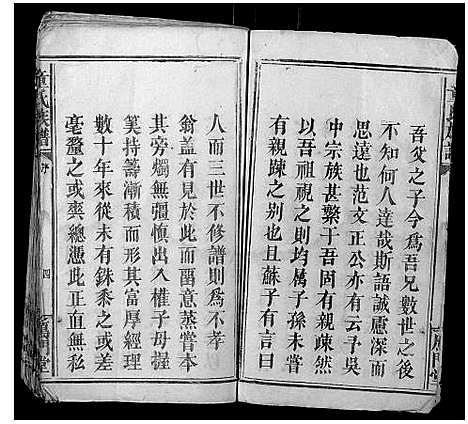 吾父之子今爲吾兄數世之後
不知何人達哉斯語誠慮深而
思遠也范文正公亦有云乎吳
中宗族甚繄于吾固有親疎然
以吾祖視之則均屬子孫未嘗
有親踈之别也且蘇子有言曰
人而三世不修譜則爲不孝
翁盖有見於此而畱意蒸嘗本
其旁燭無彊慎出入權子母握
筭持籌漸積而形其富厚經理
數十年來從未有銖黍之或差
毫釐之或爽總慿此正直無私
童氏族譜
序
四